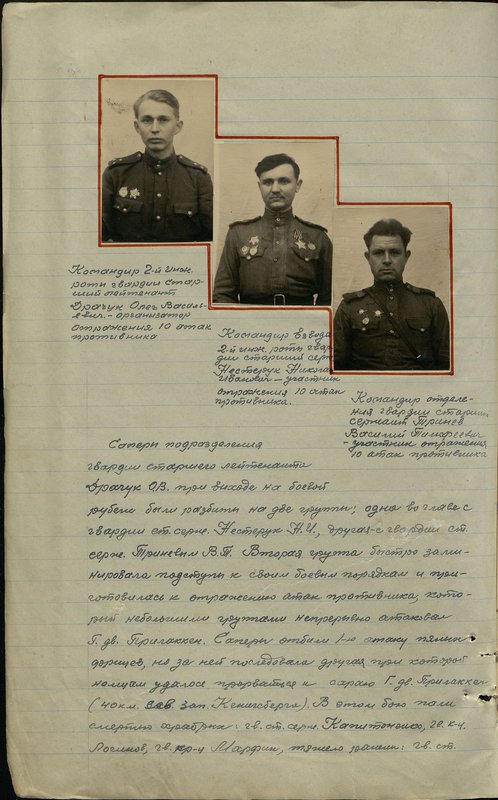 Командир 2-й инж.
роты гвардии стар-
ший лейтенант
Драчук Олег Василь-
евич - организатор
отражения 10 атак
противника
Командир взвода
2-й инж. роты гвар-
дии старший серж.
Нестерук Николай
Иванович - участник
отражения 10 атак
противника.
Командир отделе-
ния гвардии старший
сержант Тринев
Василий Тимофеевич
- участник отражения
10 атак противника
Саперы подразделения
гвардии старшего лейтенанта
Драчук О.В. при выходе на боевой
рубеж были разбиты на две группы; одна во главе с
гвардии ст. серж. Нестерук Н.И., другая - с гвардии ст.
серж. Триневым В.Т. Вторая группа быстро зами-
нировала подступы к своим боевым порядкам и при-
готовилась к отражению атак противника, кото-
рый небольшими группами непрерывно атаковал
Г. дв. Прилаккен. Саперы отбили 1-ю атаку
но за ней последовала другая при которой
немцам удалось прорваться к сараю Г. дв. Прилаккен
(40 км. зап. Кенигсберга). В этом бою пали
смертью храбрых: гв. ст. серж. гв. к-ц.
Логинов, гв. кр-ц Марфин, тяжело ранены: гв. ст.